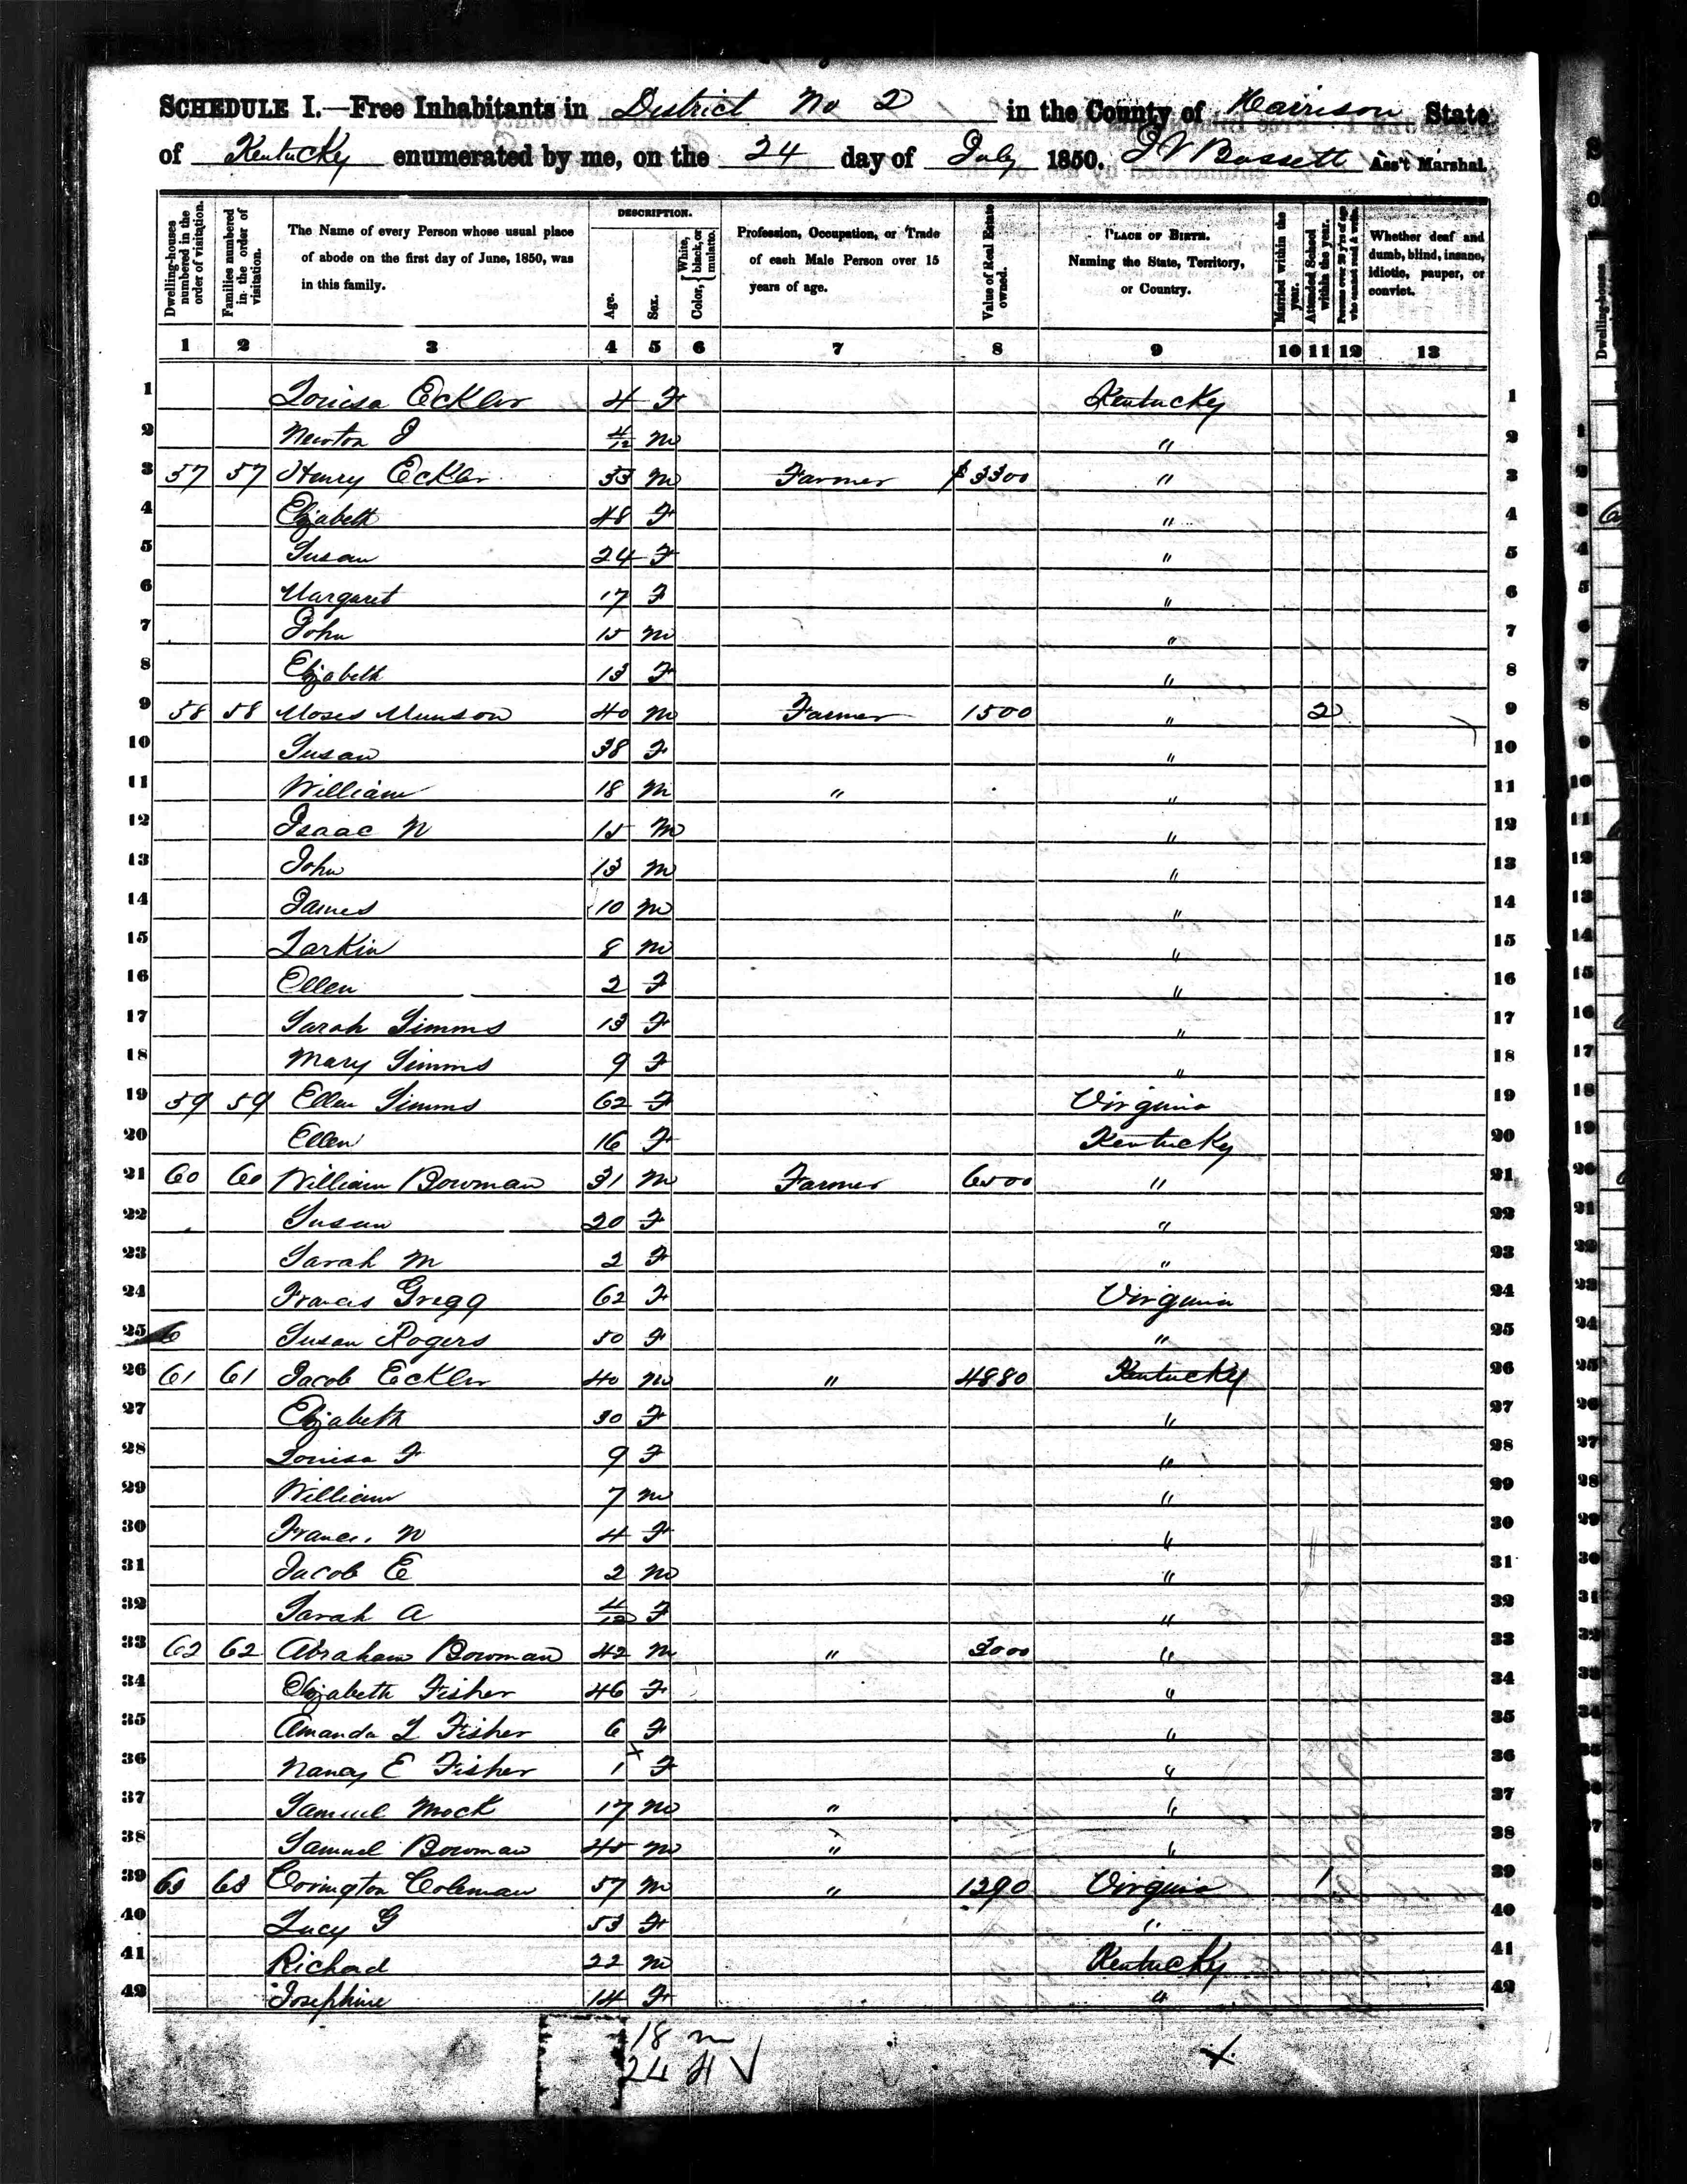 SCHEDULE I.—Free Inhabitants in District No 2 in the County of Harrison State
of Kentucky enumerated by me, on the 24 day of July 1850. J V Bassett Ass't Marshal.
Dwelling-houses numbered in the order of visitation.
Families numbered in the order of visitation.
The Name of every Person whose usual place of abode on the first day of June, 1850, was in this family.
DESCRIPTION.
Age.
Sex.
Color, { White, black, or mulatto.
Profession, Occupation, or Trade of each Male Person over 15 years of age.
Value of Real Estate owned.
PLACE OF BIRTH. Naming the State, Territory, or Country.
Married within the year.
Attended School within the year.
Persons over 20 y'rs of age who cannot read & write.
Whether deaf and dumb, blind, insane, idiotic, pauper, or convict.
1 2 3 4 5 6 7 8 9 10 11 12 13
1 Louisa Eckler 4 F Kentucky 1
2 Newton J 4/12 M " 2
3 57 57 Henry Eckler 53 M Farmer $3300 " 3
4 Elizabeth 48 F " 4
5 Susan 24 F " 5
6 Margaret 17 F " 6
7 John 15 M " 7
8 Elizabeth 13 F " 8
9 58 58 Moses Munson 40 M Farmer 1500 " 2 9
10 Susan 38 F " 10
11 William 18 M " " 11
12 Isaac N 15 M " 12
13 John 13 M " 13
14 James 10 M " 14
15 Larkin 8 M " 15
16 Ellen 2 F " 16
17 Sarah Simms 13 F " 17
18 Mary Simms 9 F " 18
19 59 59 Ellen Simms 62 F Virginia 19
20 Ellen 16 F Kentucky 20
21 60 60 William Bowman 31 M Farmer 6500 " 21
22 Susan 20 F " 22
23 Sarah M 2 F " 23
24 Frances Gregg 62 F Virginia 24
25 6 Susan Rogers 50 F " 25
26 61 61 Jacob Eckler 40 M " 4880 Kentucky 26
27 Elizabeth 30 F " 27
28 Louisa F 9 F " 28
29 William 7 M " 29
30 Frances N 4 F " 30
31 Jacob E 2 M " 31
32 Sarah A 4/12 F " 32
33 62 62 Abraham Bowman 42 M " 3000 " 33
34 Elizabeth Fisher 46 F " 34
35 Amanda L Fisher 6 F " 35
36 Nancy E Fisher 1 x F " 36
37 Samuel Mock 17 M " " 37
38 Samuel Bowman 45 M " " 38
39 63 63 Covington Coleman 57 M " 1290 Virginia 1 39
40 Lucy G 53 F " 40
41 Richard 22 M Kentucky 41
42 Josephine 14 F " 42
18 m
24 F √ x